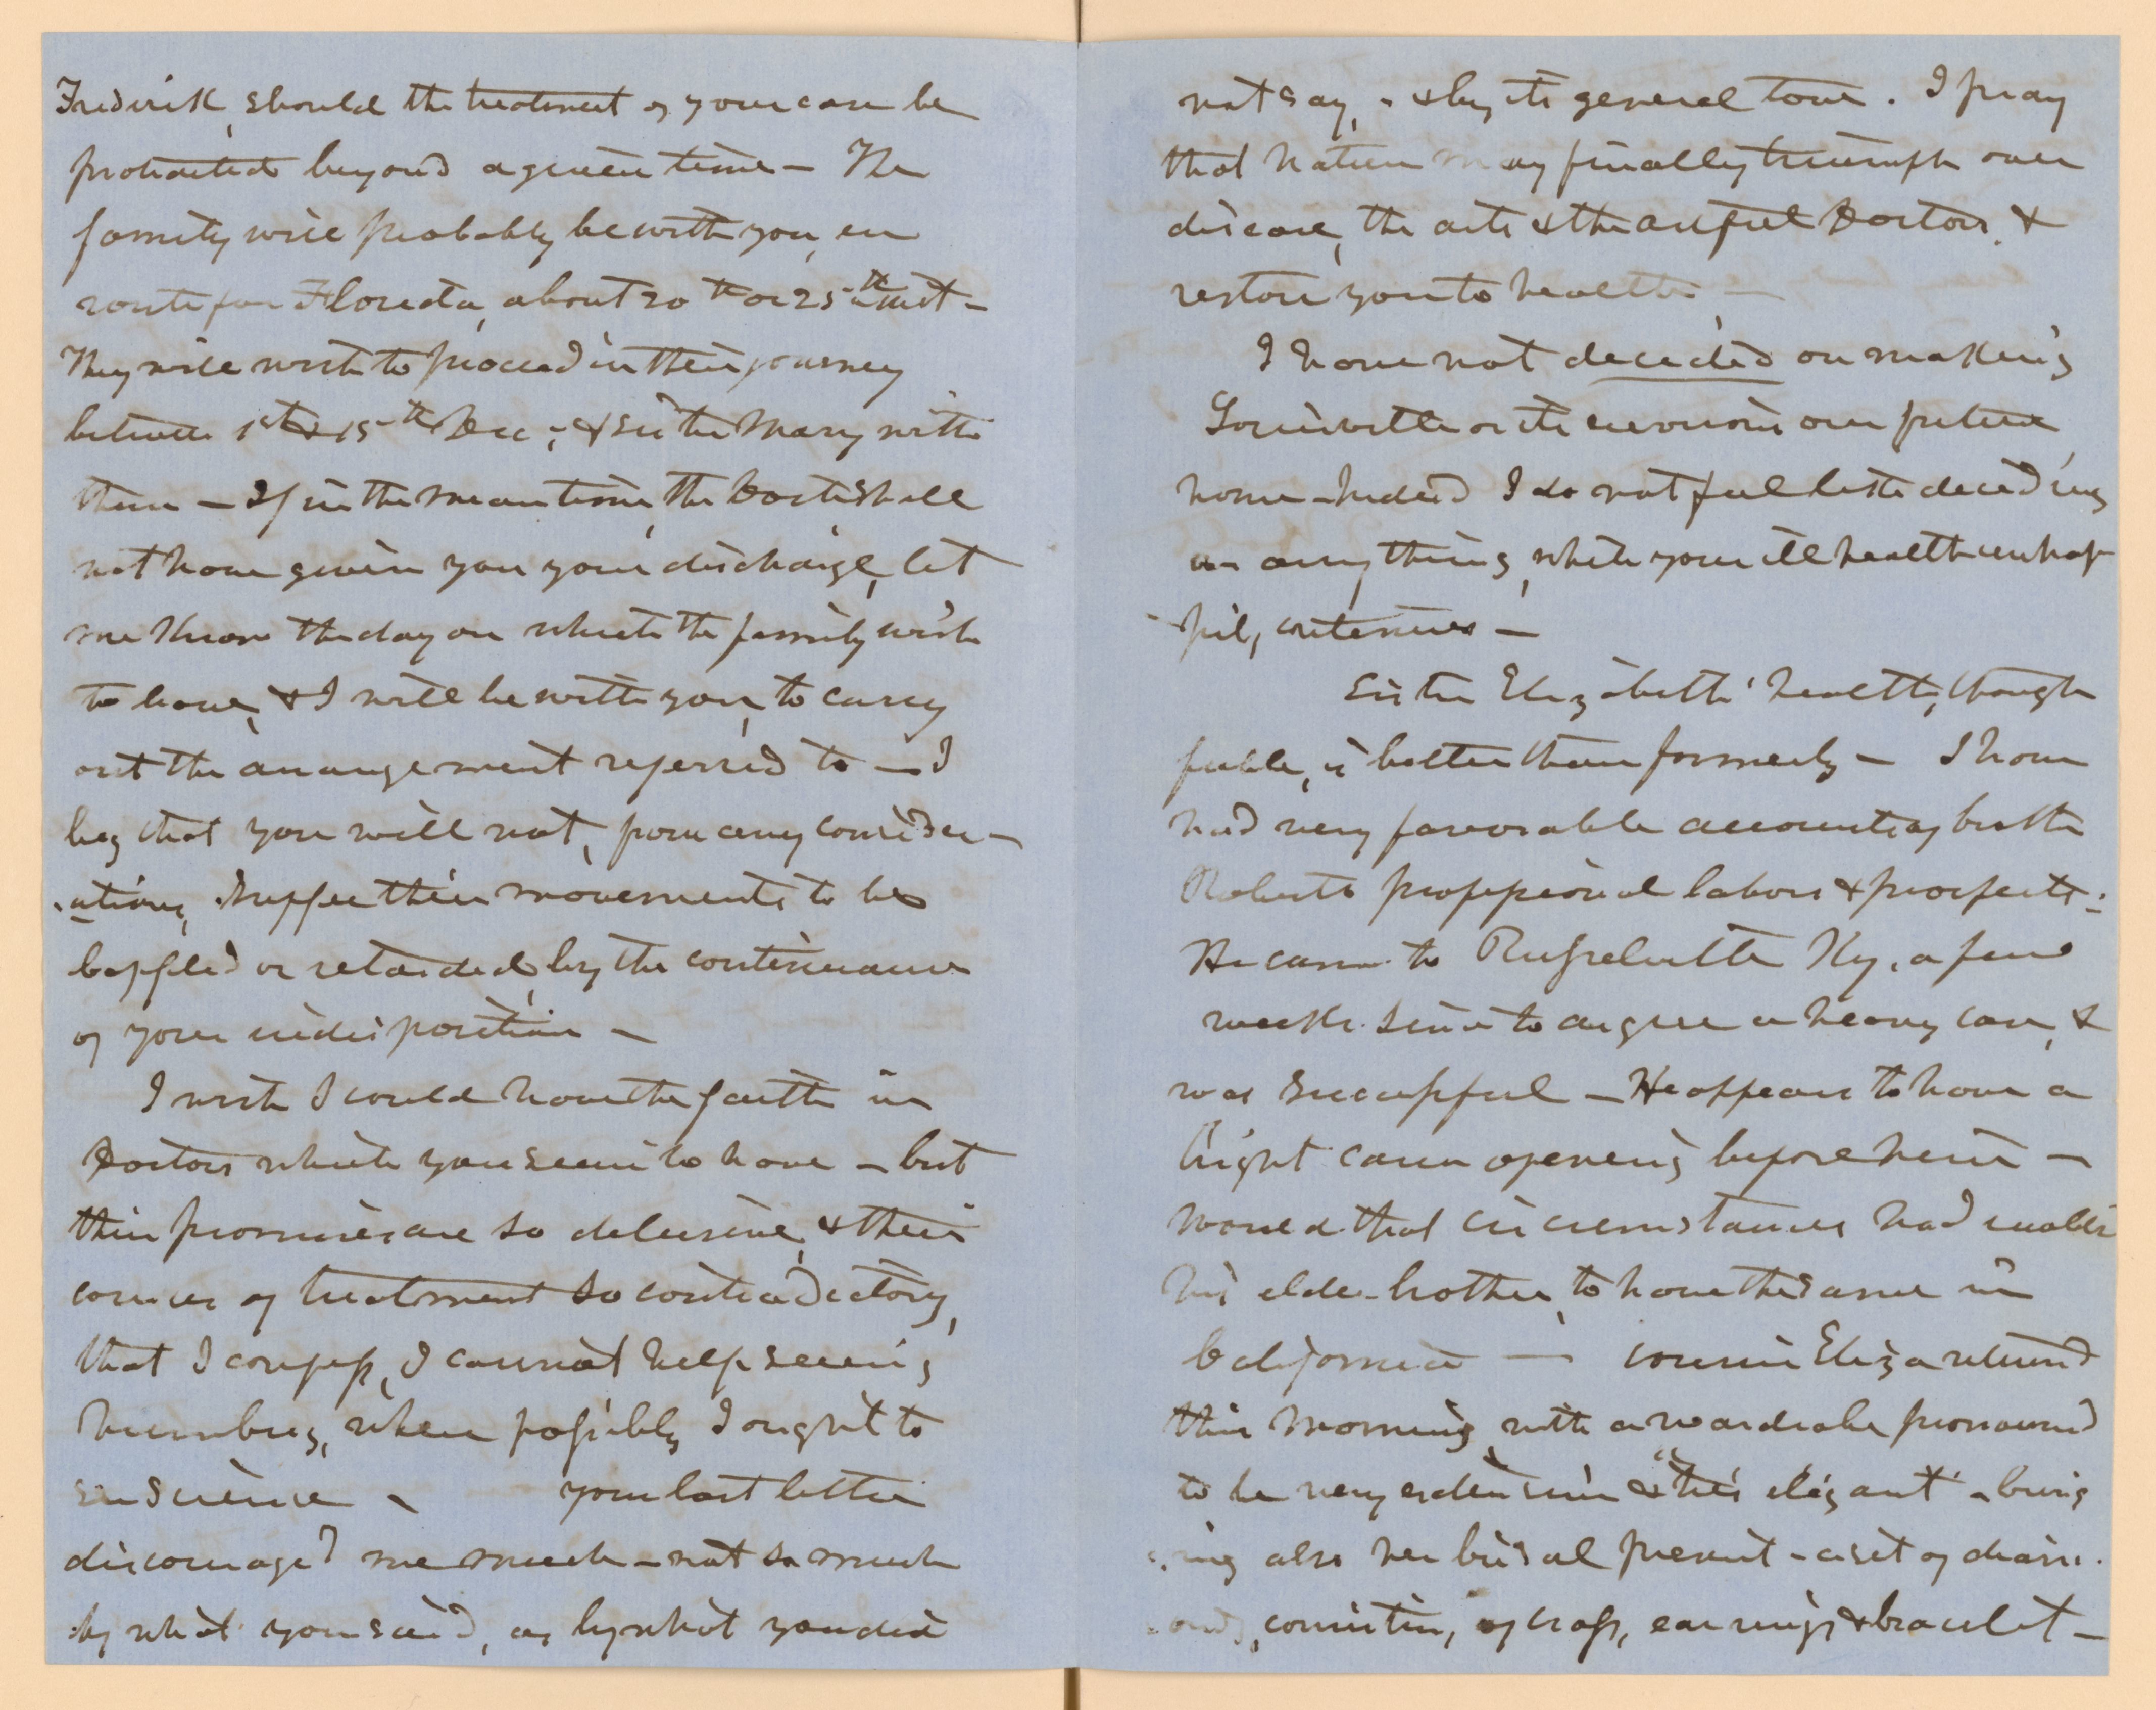 Frederick, should the treatment of your case be
protracted beyond a given time — The
family will probably be with you, en
route for Florida, about 20th or 25th inst —
They will wish to proceed in their journey
between 1st & 15th Dec; & sister Mary with
them — If in the mean time, the Doctor shall
not have given you your discharge, let
me know the day on which the family wish
to leave, & I will be with you, to carry
out the arrangement referred to — I
beg that you will not, from any consider-
-ation, suffer their movements to be
baffled or retarded, by the continuance
of your indisposition —
I wish I could have the faith in
Doctors which you seem to have — but
their promises are so delusive, & their
courses of treatment so contradictory,
that I confess, I cannot help seeing
humbug, when possibly I ought to
see science — your last letter
discouraged me much — not so much
by what you said, as by what you did
not say, & by its general tone. I pray
that Nature may finally triumph over
disease, the arts & the artful Doctors, &
restore you to health —
I have not decided on making
Louisville or its environs our future
home — Indeed I do not feel like deciding
on any thing, while your ill health unhap-
pily, continues —
Sister Elizabeth' health, though
feeble, is better than formerly — I have
had very favorable accounts of brother
Roberts professional labors & prospects —
He came to Russelville Ky, a few
weeks since to argue a heavy case, &
was successful — He appears to have a
bright career opening before him —
Would that circumstances had enabled
his elder brother, to have the same in
California — cousin Eliza returned
this morning, with a wardrobe pronounced
to be very extensive & "très elégant" — bring-
-ing also her bridal present — a set of diam-
-onds, consisting of cross, earrings & bracelet —